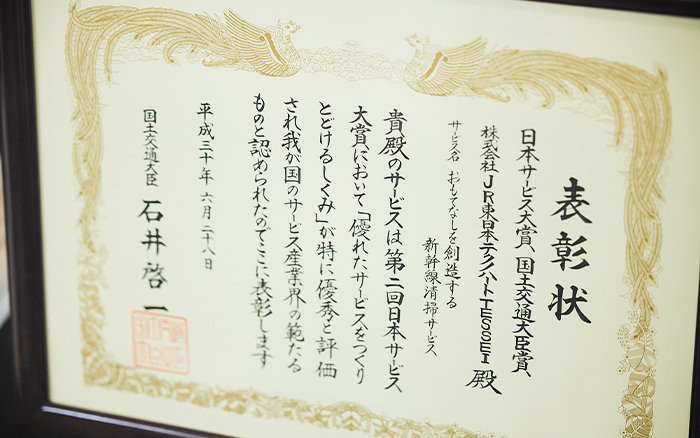 表彰状
日本サービス大賞、国土交通大臣賞、
株式会社JR東日本テクノハートTESSEI 殿
サービス名 おもてなしを創造する
新幹線清掃サービス
貴殿のサービスは第二回日本サービス
大賞において「優れたサービスをつくり
とどけるしくみ」が特に優秀と評価
され我が国のサービス産業界の範たる
ものと認められたのでここに表彰します
平成三十年 六月 二十八日
国土交通大臣 石井啓一